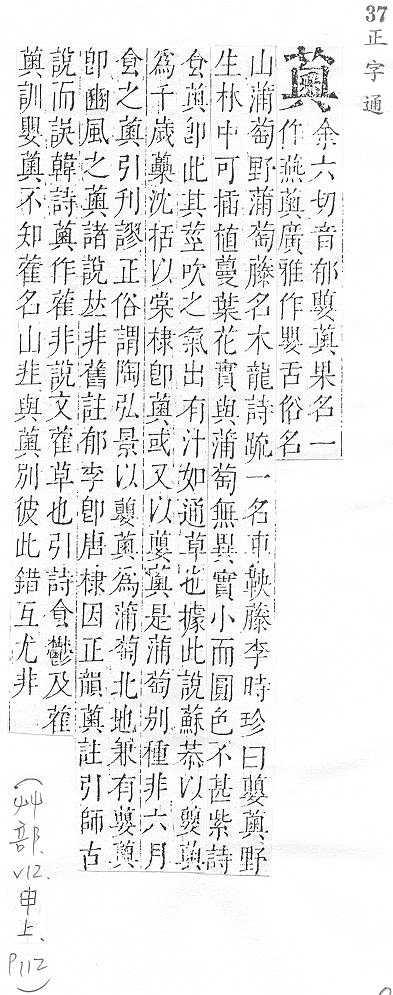 37
正字通
薁
余六切音郁蘡薁果名一
作燕薁廣雅作嬰舌俗名
山蒲萄野蒲萄藤名木龍詩疏一名車鞅藤李時珍曰蘡薁野
生林中可揷植蔓葉花實與蒲萄無異實小而圓色不甚紫詩
食薁卽此其莖吹之氣出有汁如通草也據此說蘇恭以蘡薁
爲千歲虆沈括以棠棣卽薁或又以蘡薁是蒲萄別種非六月
食之薁引刋謬正俗謂陶弘景以蘡薁爲蒲萄北地兼有蘡薁
卽豳風之薁諸說𠀤非舊註郁李卽唐棣因正韻薁註引師古
說而誤韓詩薁作蒮非說文蒮草也引詩食鬱及蒮
薁訓嬰薁不知蒮名山韭與薁別彼此錯互尤非
(艸部.v12.申上.P112)